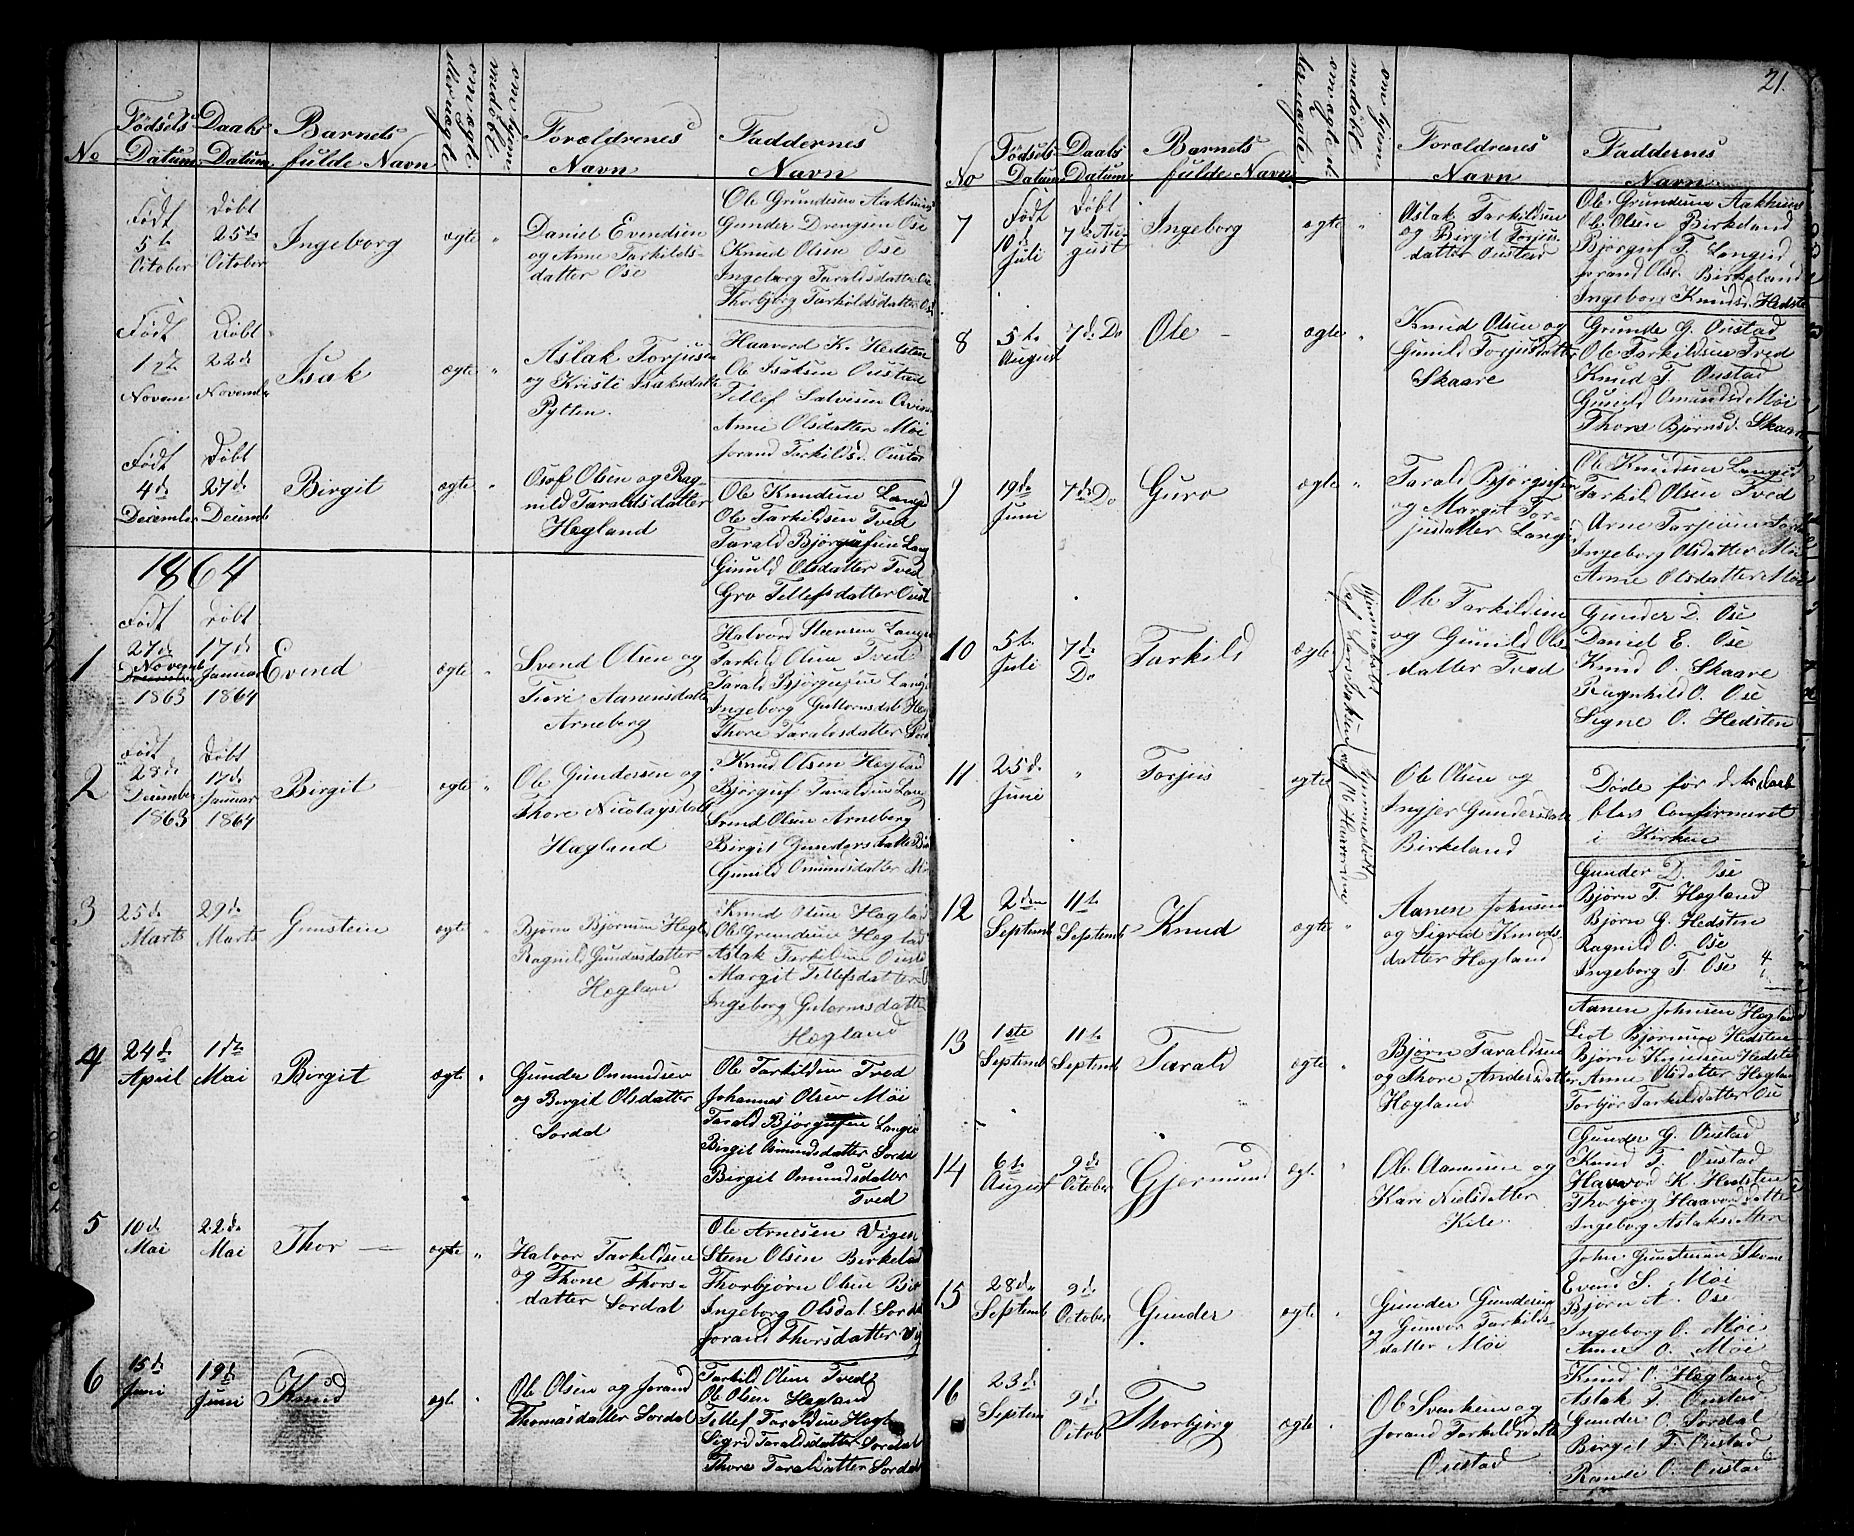 21.
No
Fødsels Datum
Daabs Datum
Barnets fulde Navn
om ægte eller uægte
om hjemmedøbt
Forældrenes Navn
Faddernes Navn
Født
5te
October
Døbt
25de
October
Ingeborg
ægte "
Daniel Evendsen
og Anne Tarkilds-
datter Ose
Ole Grundesen Aakhus
Gunder Drengsen Ose
Knud Olsen Ose
Ingeborg Taraldsdatter Ose
Thorbjørg Tarkildsdatter Ose
Født
1ste
Novem
Døbt
22de
November
Isak
ægte "
Aslak Torjusen
og Kristi Isaksdatte
Pytten.
Haavord K. Hedsten
Ole Isaksen Oustad
Tellef Salvesen
Anne Olsdatter Møi
Jorand Tarkildsd. Oustad
Født
4de
December
Døbt
27de
Decemb
Birgit
ægte "
Osof Olsen og Rag-
nild Taraldsdatter
Hegland
Ole Knudsen Langei
Ole Tarkildsen Tved
Tarald Bjørgufsen Lang
Gunild Olsdatter Tved
Gro Tellefsdatter Oust
1864
1
Født
27de
Novemb
1863
Døbt
17de
Januar
1864
Evend
ægte "
Svend Olsen og
Tore Aanensdatte
Arneberg
Halvord Steensen Lange
Tarkild Olsen Tved
Tarald Bjørgufsen Lange
Ingeborg Guttormsdat Heg
Thore Taraldsdatter Sord
2
Født
28de
December
1863
Døbt
17de
Januar
1864
Birgit
ægte "
Ole Gundersen og
Thore Nicolaysdatt
Hægland
Knud Olsen Hegland
Bjørguf Taraldsen Lang
Svend Olsen Arneberg
Birgit Gundersdatter Bir
Gunild Omundsdatter Mø
3
25de
Marts
29de
Marts
Gunstein
ægte "
Bjørn Bjørnsen Hægl
Ragnild Gundersdatter
Hegland
Knud Olsen Hægland
Ole Grundesen Hægland
Aslak Tarkildsen Ouste
Margit Tellefsdatter
Ingeborg Gutormsdatte
Hægland
4
24de
April
1ste
Mai
Birgit
ægte "
Gunder Omundsen
og Birgit Olsdatter
Sordal
Ole Tarkildsen Tved
Johannes Olsen Møi
Tarald Bjørgufsen Langei
Birgit Omundsdatter Sordal
Birgit Omundsdatter
Tved
5
10de
Mai
22de
Mai
Thor
ægte "
Halvor Tarkildsen
og Thone Thors-
datter Sordal
Ole Arnesen Vigen
Steen Olsen Birkelad
Thorbjørn Olsen Bir
Ingeborg Olsdat. Sordal
Jorand Thorsdatter Vig
6
15de
Juni
19de
Juni
Knud
ægte "
Ole Olsen og Jorand
Thomasdatter Sordal
Tarkild Olsen Tved
Ole Olsen Hægland
Tellef Taraldsen Hegl
Sigrid Taraldsdatter Sordal
Thore Taraldsdatter Sordal
No
Fødsels Datum
Daabs Datum
Barnets fulde Navn
om ægte el. uægte
om hjemmedøbt
Forældrenes Navn
Faddernes Navn
7
Født
10de
Juli
Døbt
7de Au-
gust
Ingeborg
ægte "
Aslak Tarkildsen
og Birgit Torjus-
datter Oustad
Ole Grundesen Aakhus
Ole Olsen Birkeland
Bjørguf T. Langei
Jorand Olsd. Birkeland
Ingeborg Knudsd. Hedste
8
5te
August
7de Do
Ole
ægte "
Knud Olsen og
Gunild Torjusdatte
Skaare
Grunde G. Oustad
Ole Tarkildsen Tved
Knud T. Oustad
Gunild Omundsd Møi
Thore Bjørnsd. Skaare
9
19de
Juni
7de Do
Guro
ægte "
Tarald Bjørgufsen
og Margit Tor-
jusdatter Langei
Ole Knudsen Langei
Tarkild Olsen Tved
Arne Torjusen Sordal
Ingeborg Olsdatter Møi
Anne Olsdatter Møi
10
5te
Juli
7de
Do
Tarkild
ægte
Ole Tarkildsen
og Gunild Ols-
datter Tved
Gunder D. Ose
Daniel E. Ose
Knud O. Skaare
Ragnhild O. Ose
Signe O. Hedsten
11
25de
Juni
"
Torjus
ægte
Ole Olsen og
Ingjer Gundersdatte
Birkeland
Døde før
blev Confirmeret
i Kirken
12
2den
Septemb
11te
Septemb
Knud
ægte "
Aanen Johnsen
og Sigrid Knuds-
datter Hægland
Gunder D. Ose
Bjørn T. Hægland
Bjørn G. Hedsten
Ragnild O. Ose
Ingeborg T. Ose
13
1ste
Septemb
11te
Septemb
Tarald
ægte "
Bjørn Taraldsen
og Thore Andersdatter
Hægland
Aanen Johnsen Hægland
Liot Bjørnsen Hedsten
Bjørn Knudsen Hedste
Anne Olsdatter Hægland
Torbjør Tarkildsdatter Ose
14
6te
August
9de
October
Gjermund
ægt. "
Ole Aanensen og
Kari Nielsdatter
Kile
Gunder G. Oustad
Knud T. Oustad
Havvod K. Hedsten
Thorbjørg Haavordsdatte
Ingeborg Aslaksdatter
15
28de
Septemb
9de
October
Gunder
ægte "
Gunder Gundersen
og Gunvor Tarkilds-
datter Møi
John Gunstensen Skome
Evend S. Møi
Bjørn A. Ose
Ingeborg O. Møi
Anne O. Møi
16
23de
Septem
9de
Octob
Thorbjørg
ægte "
Ole Svenken og
Jorand Tarkildsdatte
Oustad
Knud O. Hægland
Aslak T. Oustad
Gunder O. Sordal
Birgit T. Oustad
Randi O. Oustad